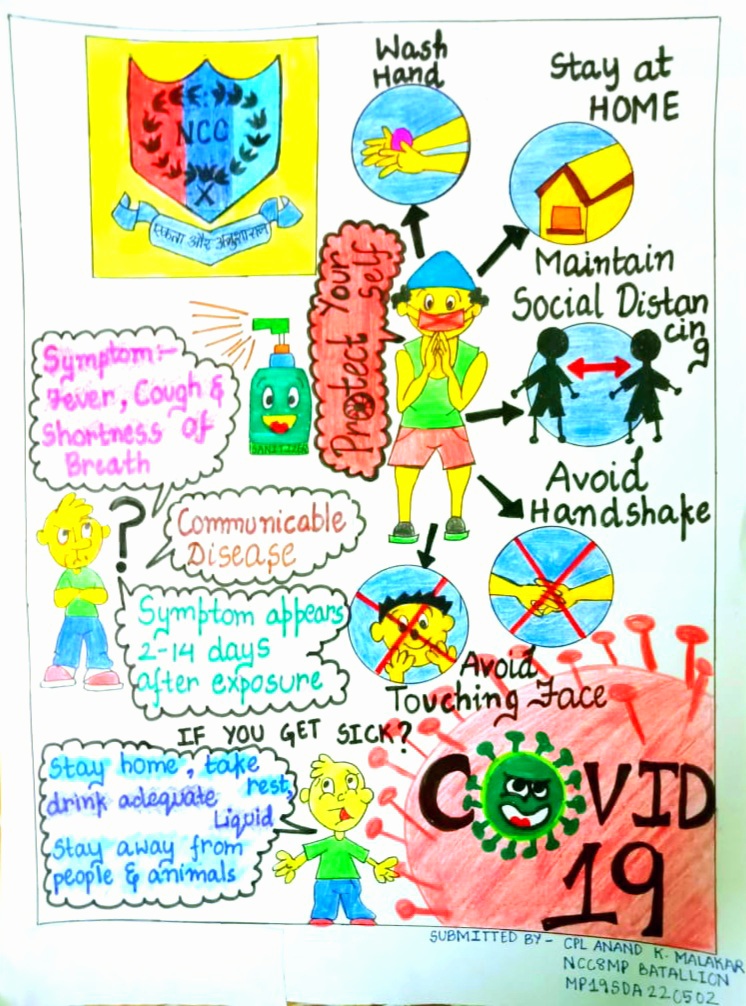 NCC
एकता और अनुशासन
Wash
Hand
Stay at
HOME
Protect Your
self
Maintain
Social Distan
cin
g
Symptom:-
Fever, Cough &
Shortness of
Breath
SANITIZER
?
Communicable
Disease
Avoid
Handshake
Symptom appears
2-14 days
after exposure
Avoid
Touching Face
IF YOU GET SICK?
Stay home, take
rest,
drink adequate
Liquid
Stay away from
people & animals
COVID
19
SUBMITTED BY- CPL ANAND K. MALAKAR
NCC8MP BATALLION
MP19SDA220502